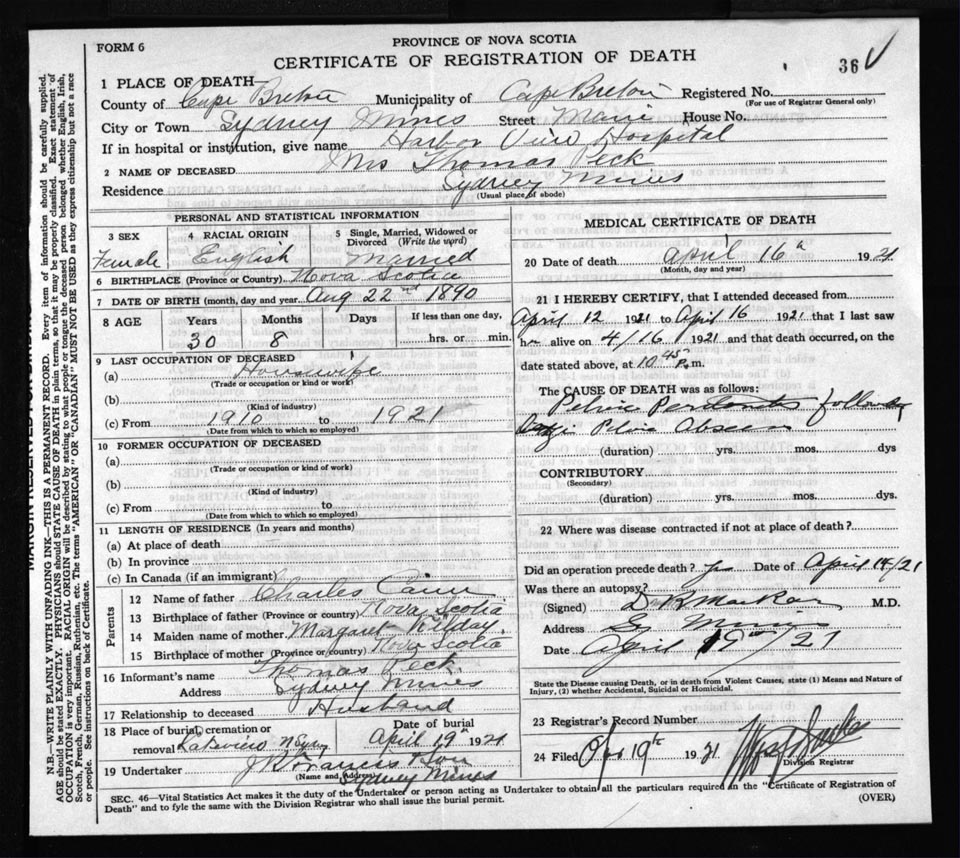 FORM 6
PROVINCE OF NOVA SCOTIA
CERTIFICATE OF REGISTRATION OF DEATH
36
1 PLACE OF DEATH—
County of Cape Breton Municipality of Cape Breton Registered No.
(For use of Registrar General only)
City or Town Sydney Mines Street Main House No.
If in hospital or institution, give name Harbor View Hospital
2 NAME OF DECEASED Mrs Thomas Peck
Residence Sydney Mines
(Usual place of abode)
PERSONAL AND STATISTICAL INFORMATION
3 SEX Female
4 RACIAL ORIGIN English
5 Single, Married, Widowed or Divorced (Write the word) Married
6 BIRTHPLACE (Province or Country) Nova Scotia
7 DATE OF BIRTH (month, day and year) Aug 22nd 1890
8 AGE Years Months Days If less than one day,
30 8 hrs. or min.
9 LAST OCCUPATION OF DECEASED
(a) Housewife
(Trade or occupation or kind of work)
(b)
(Kind of industry)
(c) From 1910 to 1921
(Date from which to which so employed)
10 FORMER OCCUPATION OF DECEASED
(a)
(Trade or occupation or kind of work)
(b)
(Kind of industry)
(c) From to
(Date from which to which so employed)
11 LENGTH OF RESIDENCE (In years and months)
(a) At place of death
(b) In province
(c) In Canada (if an immigrant)
Parents
12 Name of father Charles
13 Birthplace of father (Province or country) Nova Scotia
14 Maiden name of mother Margaret
15 Birthplace of mother (Province or country) Nova Scotia
16 Informant's name Thomas Peck
Address Sydney Mines
17 Relationship to deceased Husband
18 Place of burial, cremation or removal
Date of burial April 19th 1921
19 Undertaker
(Name and Address) Sydney Mines
MEDICAL CERTIFICATE OF DEATH
20 Date of death April 16th 1921
(Month, day and year)
21 I HEREBY CERTIFY, that I attended deceased from
April 12 1921 to April 16 1921 that I last saw
alive on 4/16 1921 and that death occurred, on the
date stated above, at 10.45 P.m.
The CAUSE OF DEATH was as follows:
Pelvic following
Pelvic
(duration) yrs. mos. dys
CONTRIBUTORY
(Secondary)
(duration) yrs. mos. dys.
22 Where was disease contracted if not at place of death?
Did an operation precede death? yes Date of April 14/21
Was there an autopsy?
(Signed) M.D.
Address Sy Mines
Date April 19th/21
State the Disease causing Death, or in death from Violent Causes, state (1) Means and Nature of
Injury, (2) whether Accidental, Suicidal or Homicidal.
23 Registrar's Record Number
24 Filed Apr 19th 1921
Division Registrar
SEC. 46—Vital Statistics Act makes it the duty of the Undertaker or person acting as Undertaker to obtain all the particulars required in the "Certificate of Registration of
Death" and to fyle the same with the Division Registrar who shall issue the burial permit.
(OVER)
N.B.—WRITE PLAINLY WITH UNFADING INK—THIS IS A PERMANENT RECORD. Every item of information should be carefully supplied.
AGE should be stated EXACTLY. PHYSICIANS should STATE CAUSE OF DEATH in plain terms, so that it may be properly classified. Exact statement of
OCCUPATION is very important. RACIAL ORIGIN will be described by stating to what people or tongue the deceased person belonged whether English, Irish,
Scotch, French, German, Russian, Ruthenian, etc. The terms "AMERICAN" OR "CANADIAN" MUST NOT BE USED as they express citizenship but not a race
or people. See instructions on back of Certificate.